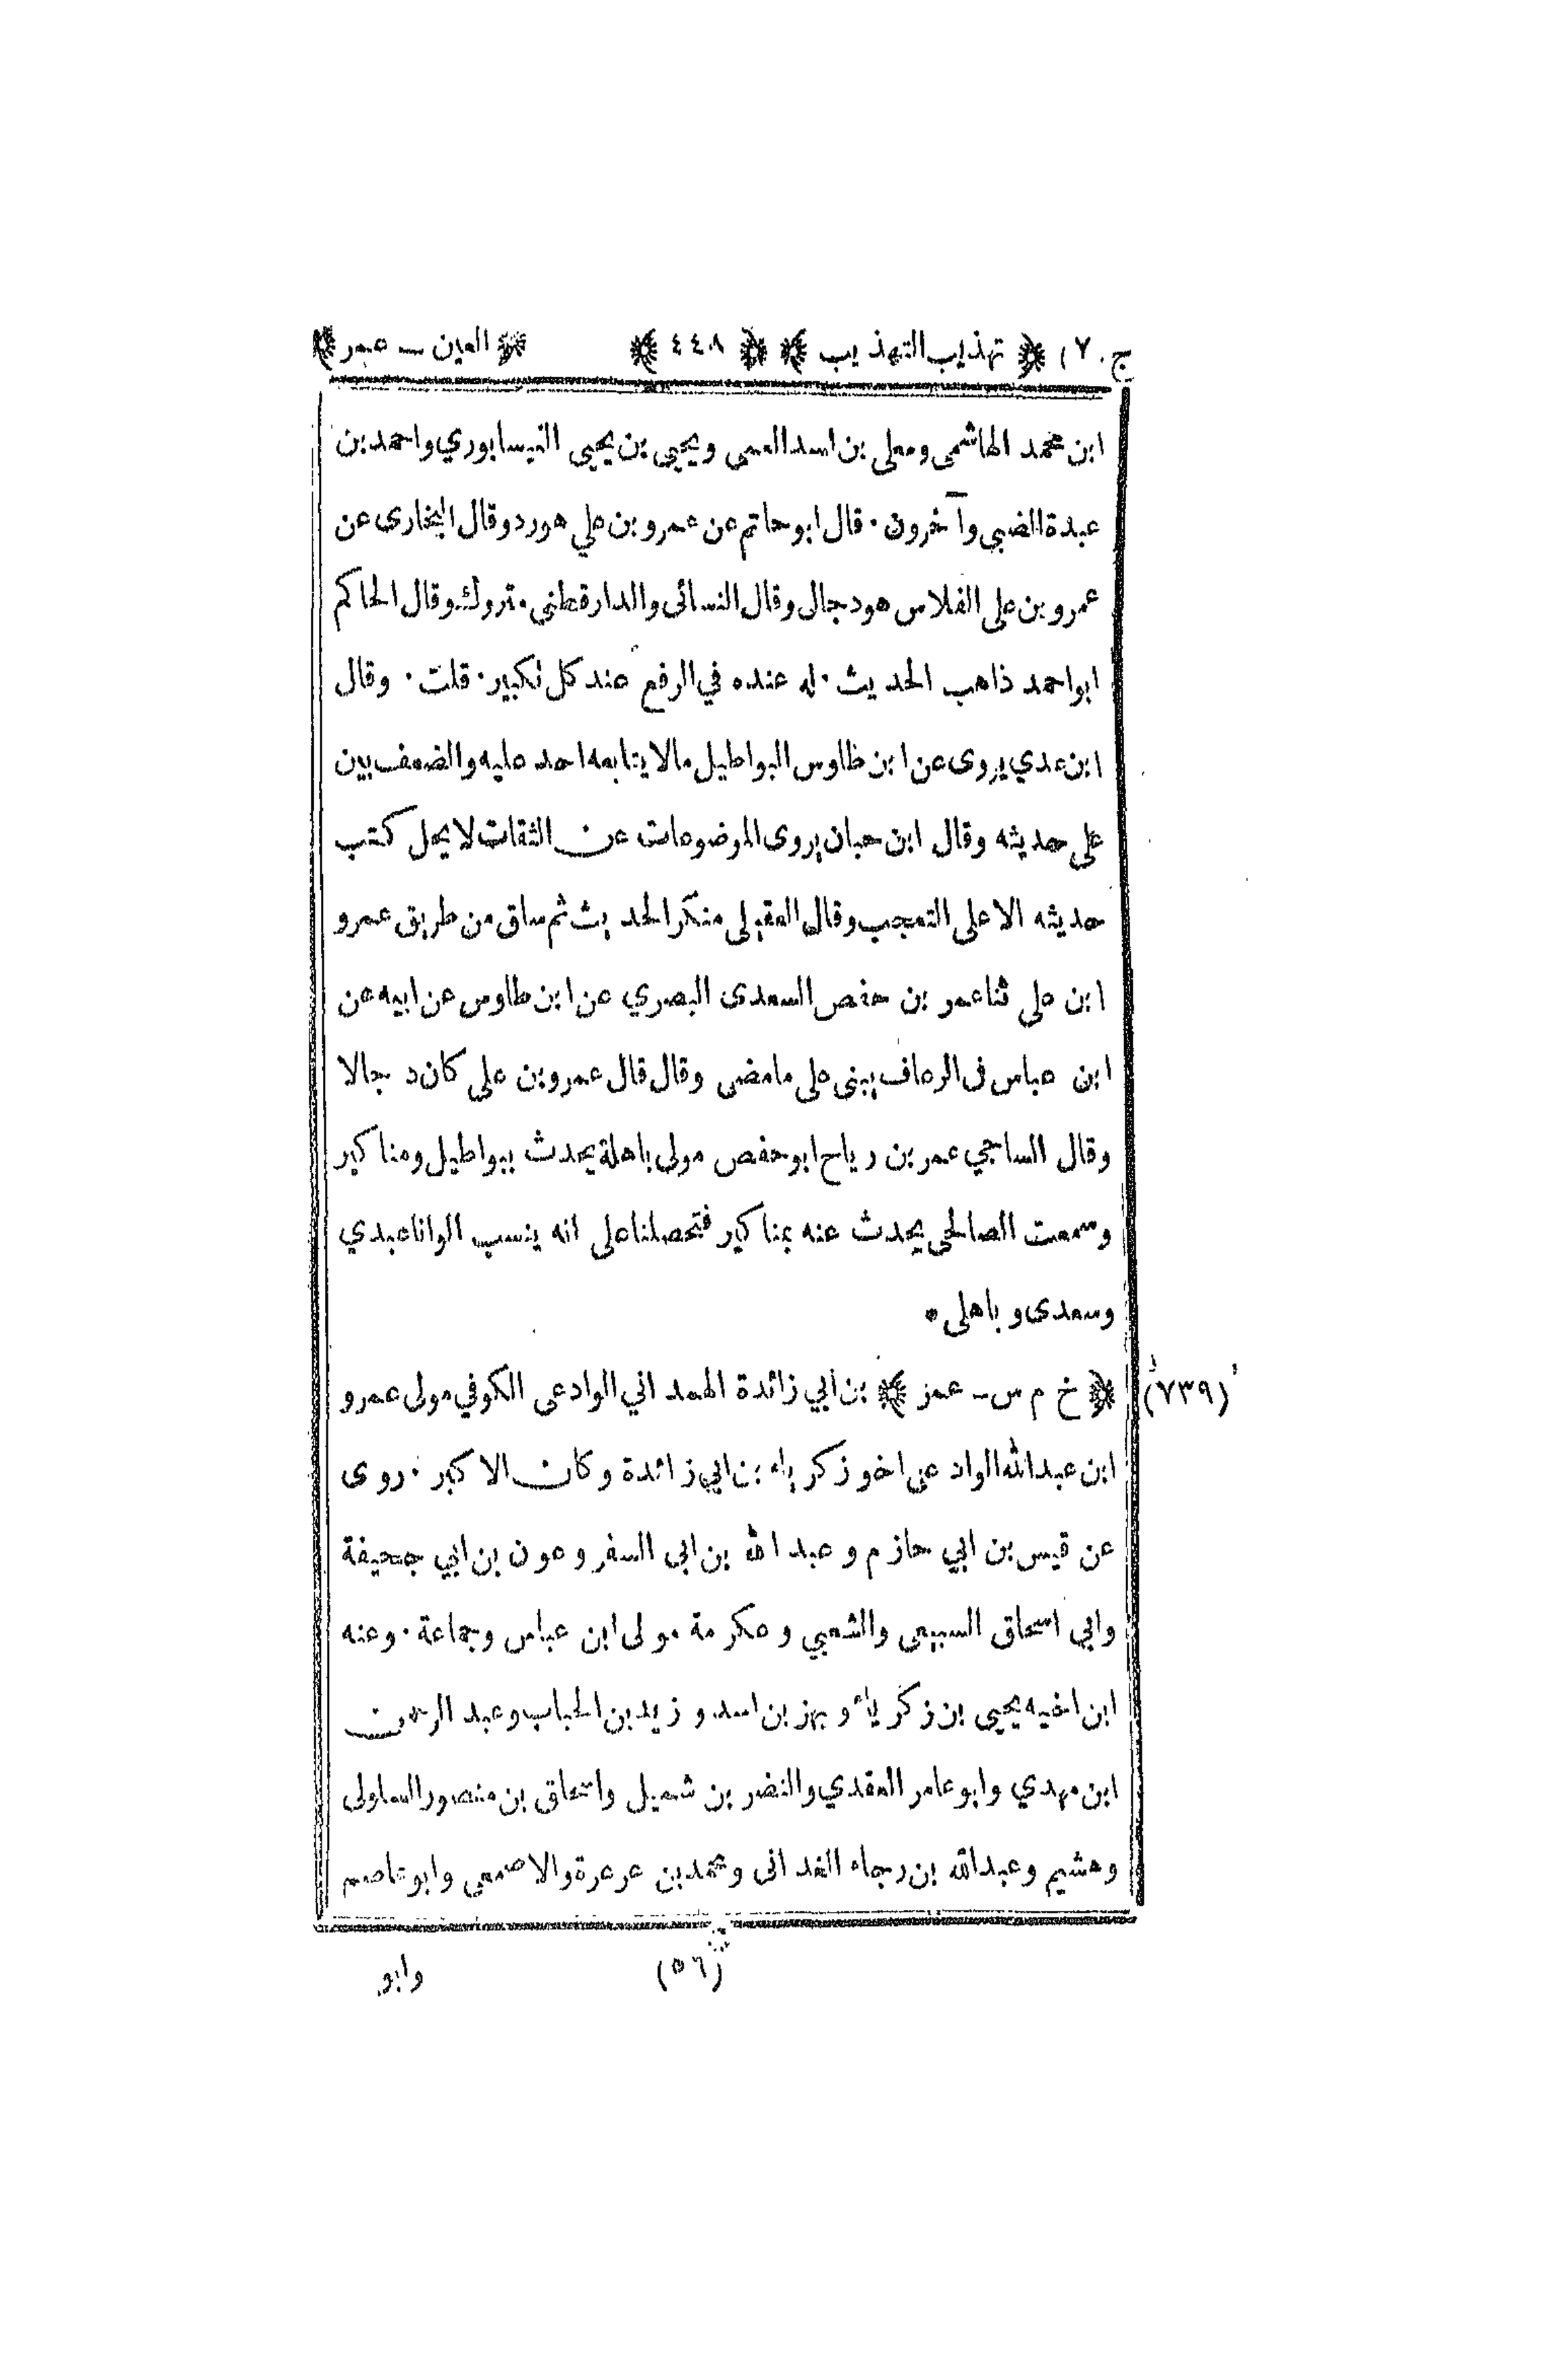 ج . ٧ ﴿ تهذيب التهذيب ﴾ ﴿ ٤٤٨ ﴾ ﴿ العين ــ عمر ﴾
ابن محمد الهاشمى ومعلى بن اسد العمى ويحيى بن يحيى النيسابوري واحمد بن
عبدة الضبى وآخرون ٠ قال ابو حاتم عن عمرو بن علي هو رد وقال البخارى عن
عمرو بن على الفلاس هو دجال وقال النسائى والدارقطنى متروك وقال الحاكم
ابو احمد ذاهب الحديث ٠ له عنده في الرفع عند كل تكبير ٠ قلت ٠ وقال
ابن عدي يروى عن ابن طاوس البواطيل مالا يتابعه احد عليه والضعف بين
على حديثه وقال ابن حبان يروى الموضوعات عن الثقات لا يحل كتب
حديثه الا على التعجب وقال العقيلى منكر الحديث ثم ساق من طريق عمرو
ابن على ثنا عمر بن حفص السعدى البصري عن ابن طاوس عن ابيه عن
ابن عباس فى الرعاف يبنى على ما مضى وقال قال عمرو بن علي كان دجالا
وقال الساجي عمر بن رياح ابو حفص مولى باهلة يحدث ببواطيل ومناكير
وسمعت الصالحى يحدث عنه بمناكير فتحصلنا على انه ينسب الوانا عبدي
وسعدى وباهلى ٠
(٧٣٩) ﴿ خ م س ــ عمر ﴾ بن أبي زائدة الهمداني الوادعى الكوفي مولى عمرو
ابن عبدالله الوادعى اخو زكرياء بن ابي زائدة وكان الاكبر ٠ روى
عن قيس بن ابي حازم و عبد الله بن ابى السفر و عون بن ابي جحيفة
وابي اسحاق السبيعى والشعبي و عكرمة مولى ابن عباس وجماعة ٠ وعنه
ابن اخيه يحيى بن زكرياء و بهز بن اسد و زيد بن الحباب وعبد الرحمن
ابن مهدي وابو عامر العقدي والنضر بن شميل واسحاق بن منصور السلولى
وهشيم وعبدالله بن رجاء الغدانى ومحمد بن عرعرة والاصمعى وابو عاصم
(٥٦) وابو